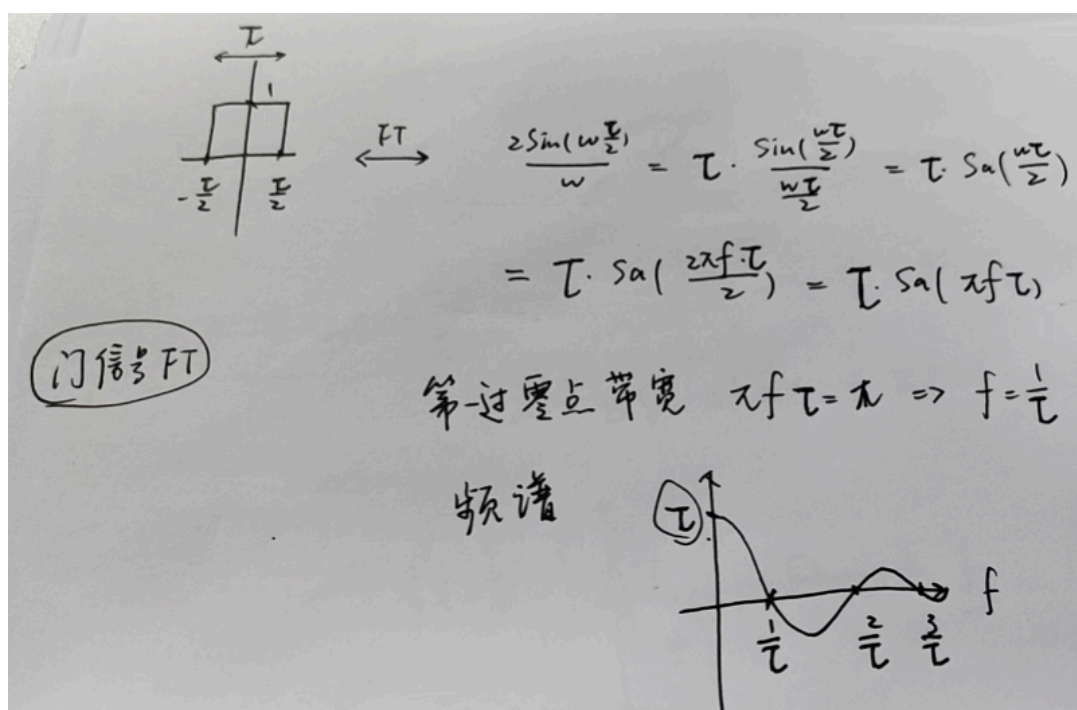 τ
1
-τ/2 τ/2
FT
2Sin(ωτ/2)/ω = τ· Sin(ωτ/2)/(ωτ/2) = τ· Sa(ωτ/2)
= τ· Sa(2πf·τ/2) = τ· Sa(πfτ)
门信号FT
第一过零点带宽 πfτ=π => f=1/τ
频谱
τ
f
1/τ 2/τ 3/τ